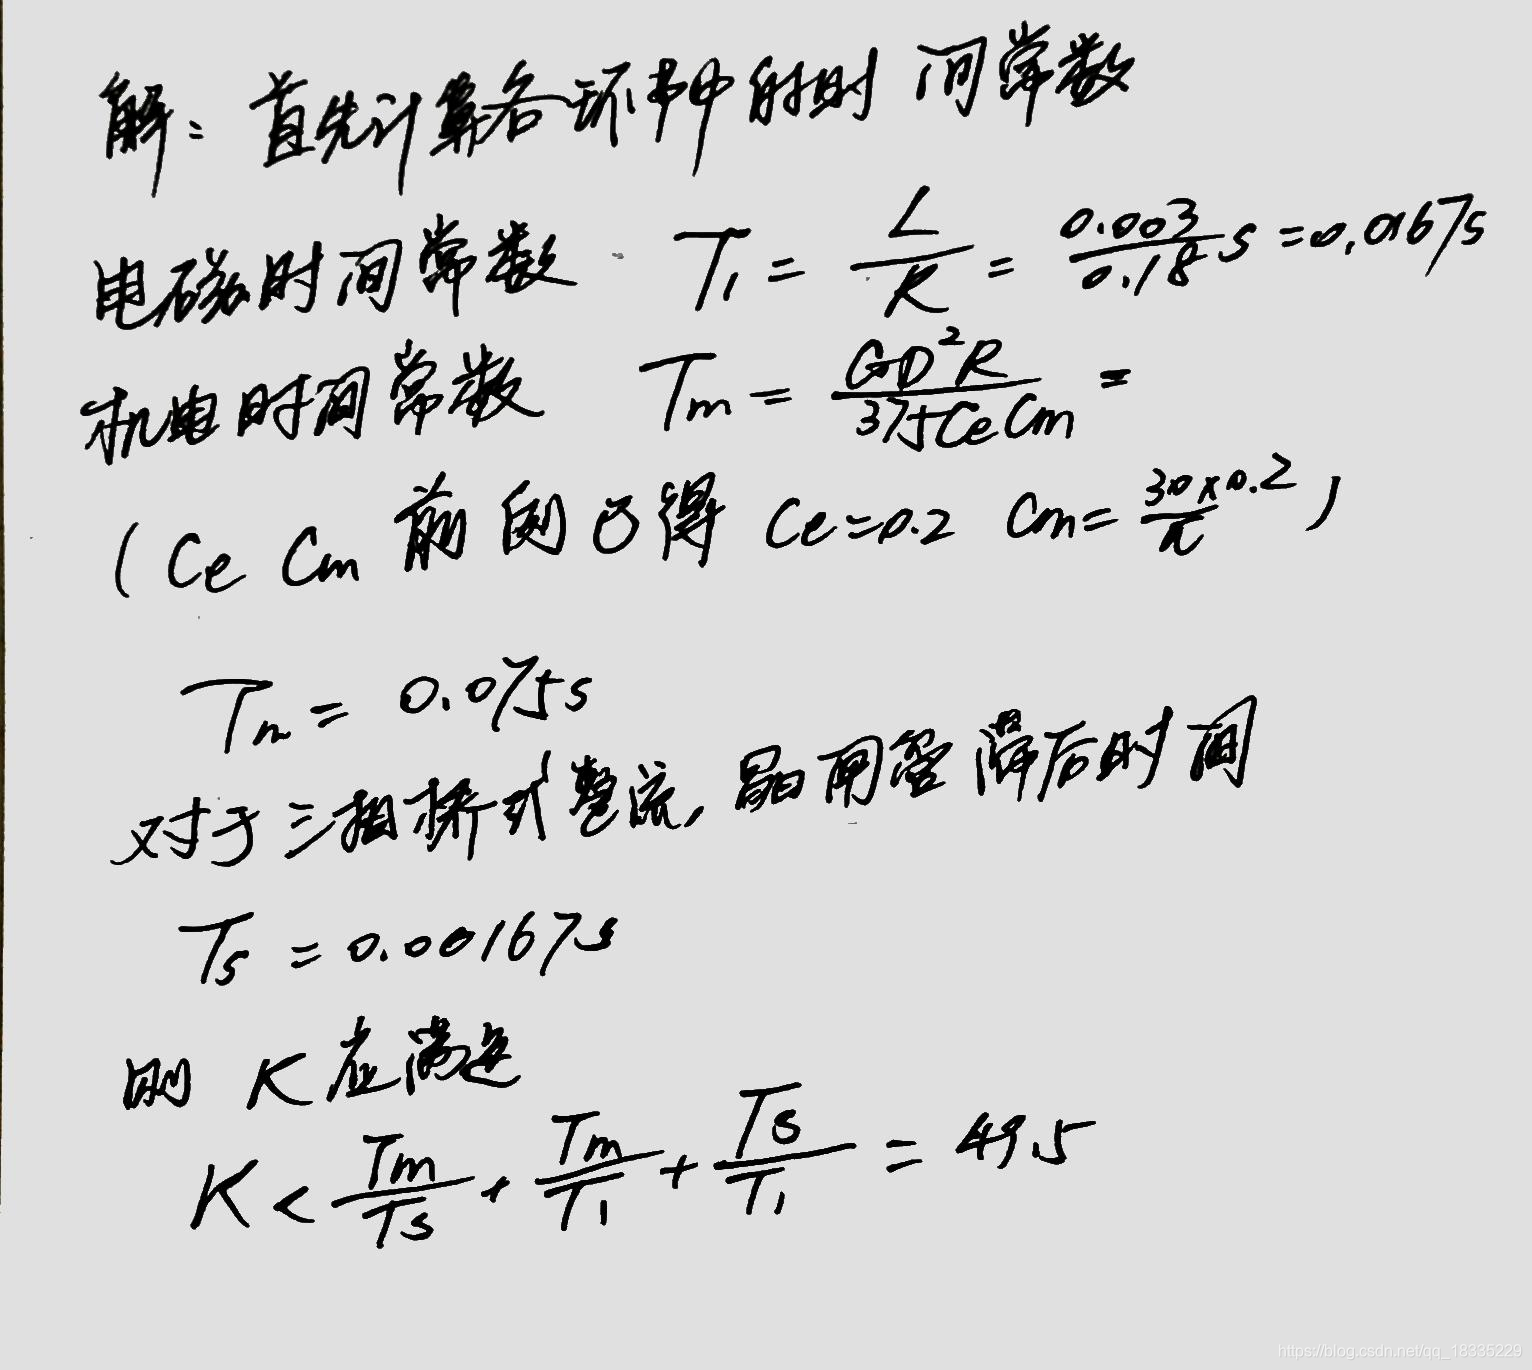 解：首先计算各环节中的时间常数
电磁时间常数 T₁ = L/R = 0.003/0.18 s = 0.0167s
机电时间常数 Tm = GD²R/375CeCm =
(Ce Cm 前面已得 Ce=0.2 Cm=30×0.2/π)
Tm = 0.075s
对于三相桥式整流，晶闸管滞后时间
Ts = 0.00167s
则 K应满足
K < Tm/Ts + Tm/T₁ + Ts/T₁ = 49.5
https://blog.csdn.net/qq_18335229